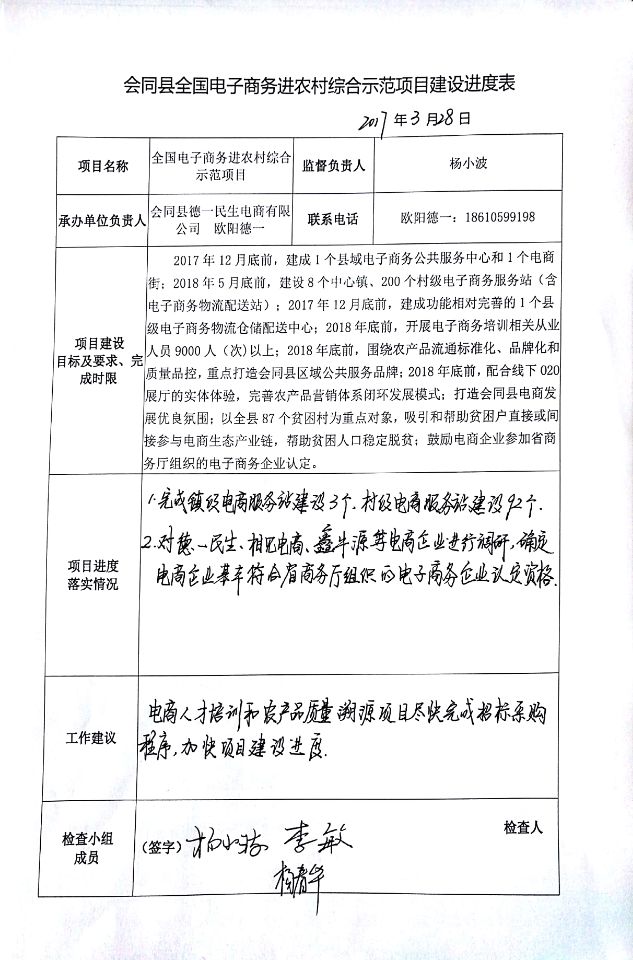 会同县全国电子商务进农村综合示范项目建设进度表
2017年3月28日
项目名称
全国电子商务进农村综合
示范项目
监督负责人
杨小波
承办单位负责人
会同县德一民生电商有限
公司 欧阳德一
联系电话
欧阳德一：18610599198
项目建设
目标及要求、完
成时限
2017年12月底前，建成1个县域电子商务公共服务中心和1个电商
街；2018年5月底前，建设8个中心镇、200个村级电子商务服务站（含
电子商务物流配送站）；2017年12月底前，建成功能相对完善的1个县
级电子商务物流仓储配送中心；2018年底前，开展电子商务培训相关从业
人员9000人（次)以上；2018年底前，围绕农产品流通标准化、品牌化和
质量品控，重点打造会同县区域公共服务品牌；2018年底前，配合线下O2O
展厅的实体体验，完善农产品营销体系闭环发展模式；打造会同县电商发
展优良氛围；以全县87个贫困村为重点对象，吸引和帮助贫困户直接或间
接参与电商生态产业链，帮助贫困人口稳定脱贫；鼓励电商企业参加省商
务厅组织的电子商务企业认定。
项目进度
落实情况
1.完成镇级电商服务站建设3个、村级电商服务站建设92个.
2.对德一民生、相见电商、鑫牛源等电商企业进行调研，确定
电商企业基本符合省商务厅组织的电子商务企业认定资格.
工作建议
电商人才培训和农产品质量溯源项目尽快完成招标采购
程序，加快项目建设进度.
检查小组
成员
(签字) 杨小波 李敏
检查人
杨青华